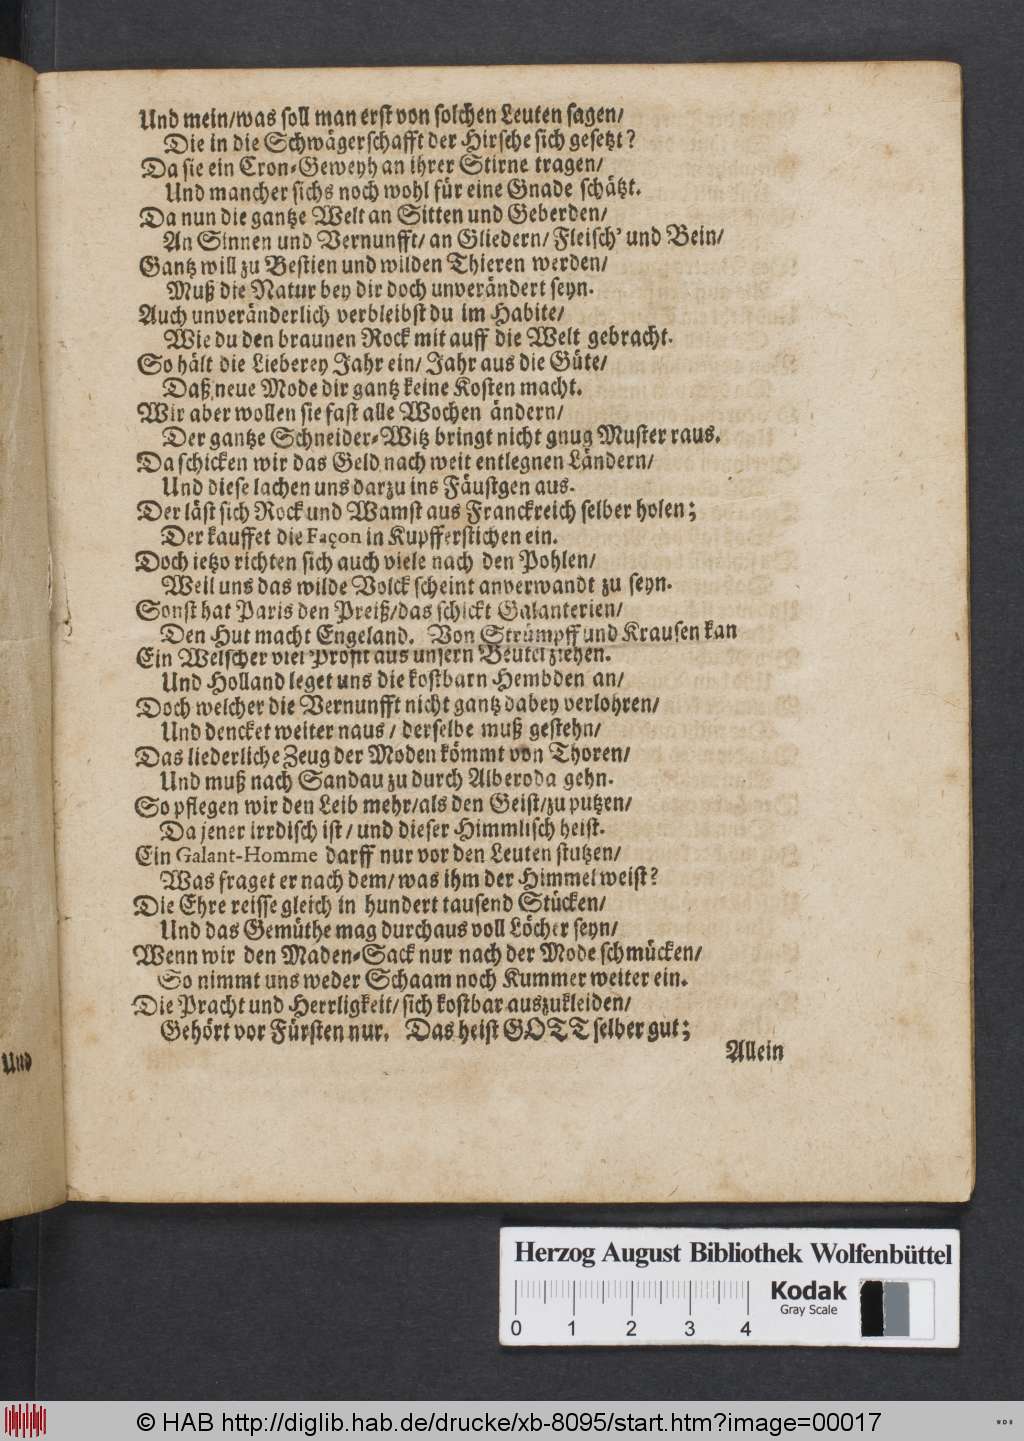 Und mein/was soll man erst von solchen Leuten sagen/
Die in die Schwägerschafft der Hirsche sich gesetzt?
Da sie ein Cron-Geweyh an ihrer Stirne tragen/
Und mancher sichs noch wohl für eine Gnade schätzt.
Da nun die gantze Welt an Sitten und Geberden/
An Sinnen und Vernunfft/ an Gliedern/ Fleisch' und Bein/
Gantz will zu Bestien und wilden Thieren werden/
Muß die Natur bey dir doch unverändert seyn.
Auch unveränderlich verbleibst du im Habite/
Wie du den braunen Rock mit auff die Welt gebracht.
So hält die Lieberey Jahr ein/ Jahr aus die Güte/
Daß neue Mode dir gantz keine Kosten macht.
Wir aber wollen sie fast alle Wochen ändern/
Der gantze Schneider-Witz bringt nicht gnug Muster raus.
Da schicken wir das Geld nach weit entlegnen Ländern/
Und diese lachen uns darzu ins Fäustgen aus.
Der läst sich Rock und Wamst aus Franckreich selber holen;
Der kauffet die Façon in Kupfferstichen ein.
Doch ietzo richten sich auch viele nach den Pohlen/
Weil uns das wilde Volck scheint anverwandt zu seyn.
Sonst hat Paris den Preiß/das schickt Galanterien/
Den Hut macht Engeland. Von Strümpff und Krausen kan
Ein Welscher viel Profit aus unsern Beutel ziehen.
Und Holland leget uns die kostbarn Hembden an/
Doch welcher die Vernunfft nicht gantz dabey verlohren/
Und dencket weiter naus / derselbe muß gestehn/
Das liederliche Zeug der Moden kömmt von Thoren/
Und muß nach Sandau zu durch Alberoda gehn.
So pflegen wir den Leib mehr/als den Geist/zu putzen/
Da jener irrdisch ist / und dieser Himmlisch heist.
Ein Galant-Homme darff nur vor den Leuten stutzen/
Was fraget er nach dem/ was ihm der Himmel weist?
Die Ehre reisse gleich in hundert tausend Stücken/
Und das Gemüthe mag durchaus voll Löcher seyn/
Wenn wir den Maden-Sack nur nach der Mode schmücken/
So nimmt uns weder Schaam noch Kummer weiter ein.
Die Pracht und Herrligkeit/ sich kostbar auszukleiden/
Gehört vor Fürsten nur. Das heist GOTT selber gut;
Allein
Und
Herzog August Bibliothek Wolfenbüttel
Kodak
Gray Scale
0 1 2 3 4
© HAB http://diglib.hab.de/drucke/xb-8095/start.htm?image=00017